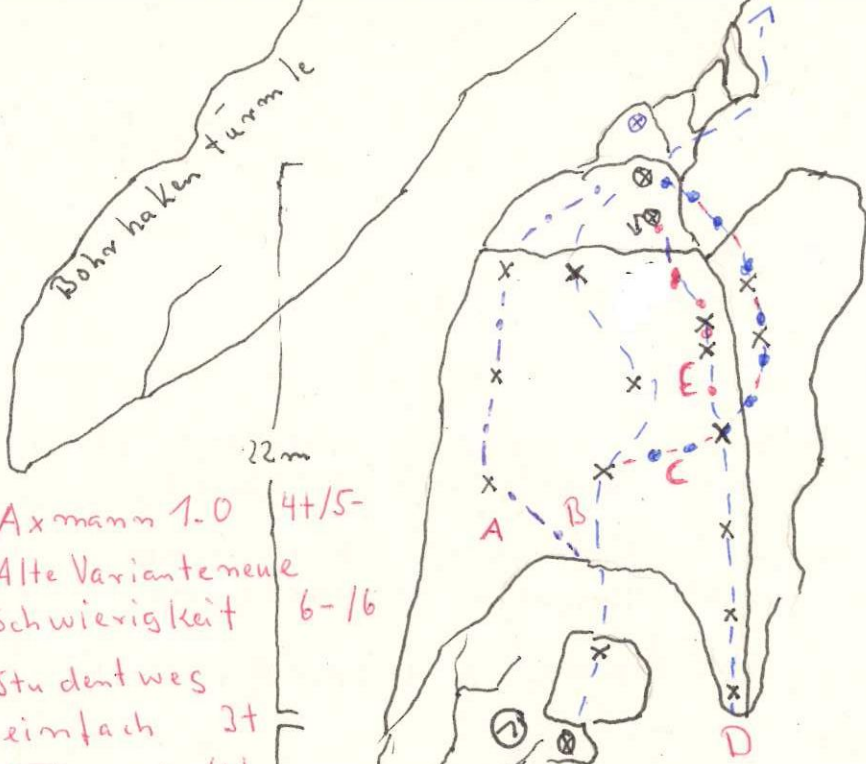 Bohrhakentürmle
22m
Axmann 1.0 4+/5-
Alte Variante neue
Schwierigkeit 6-/6
einfach 3+
A
B
C
D
E
1